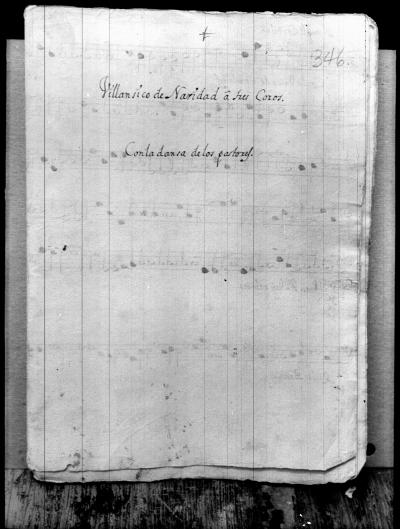 346.
Villansico de Navidad â tres Coros.
Contadansa de los pastores.